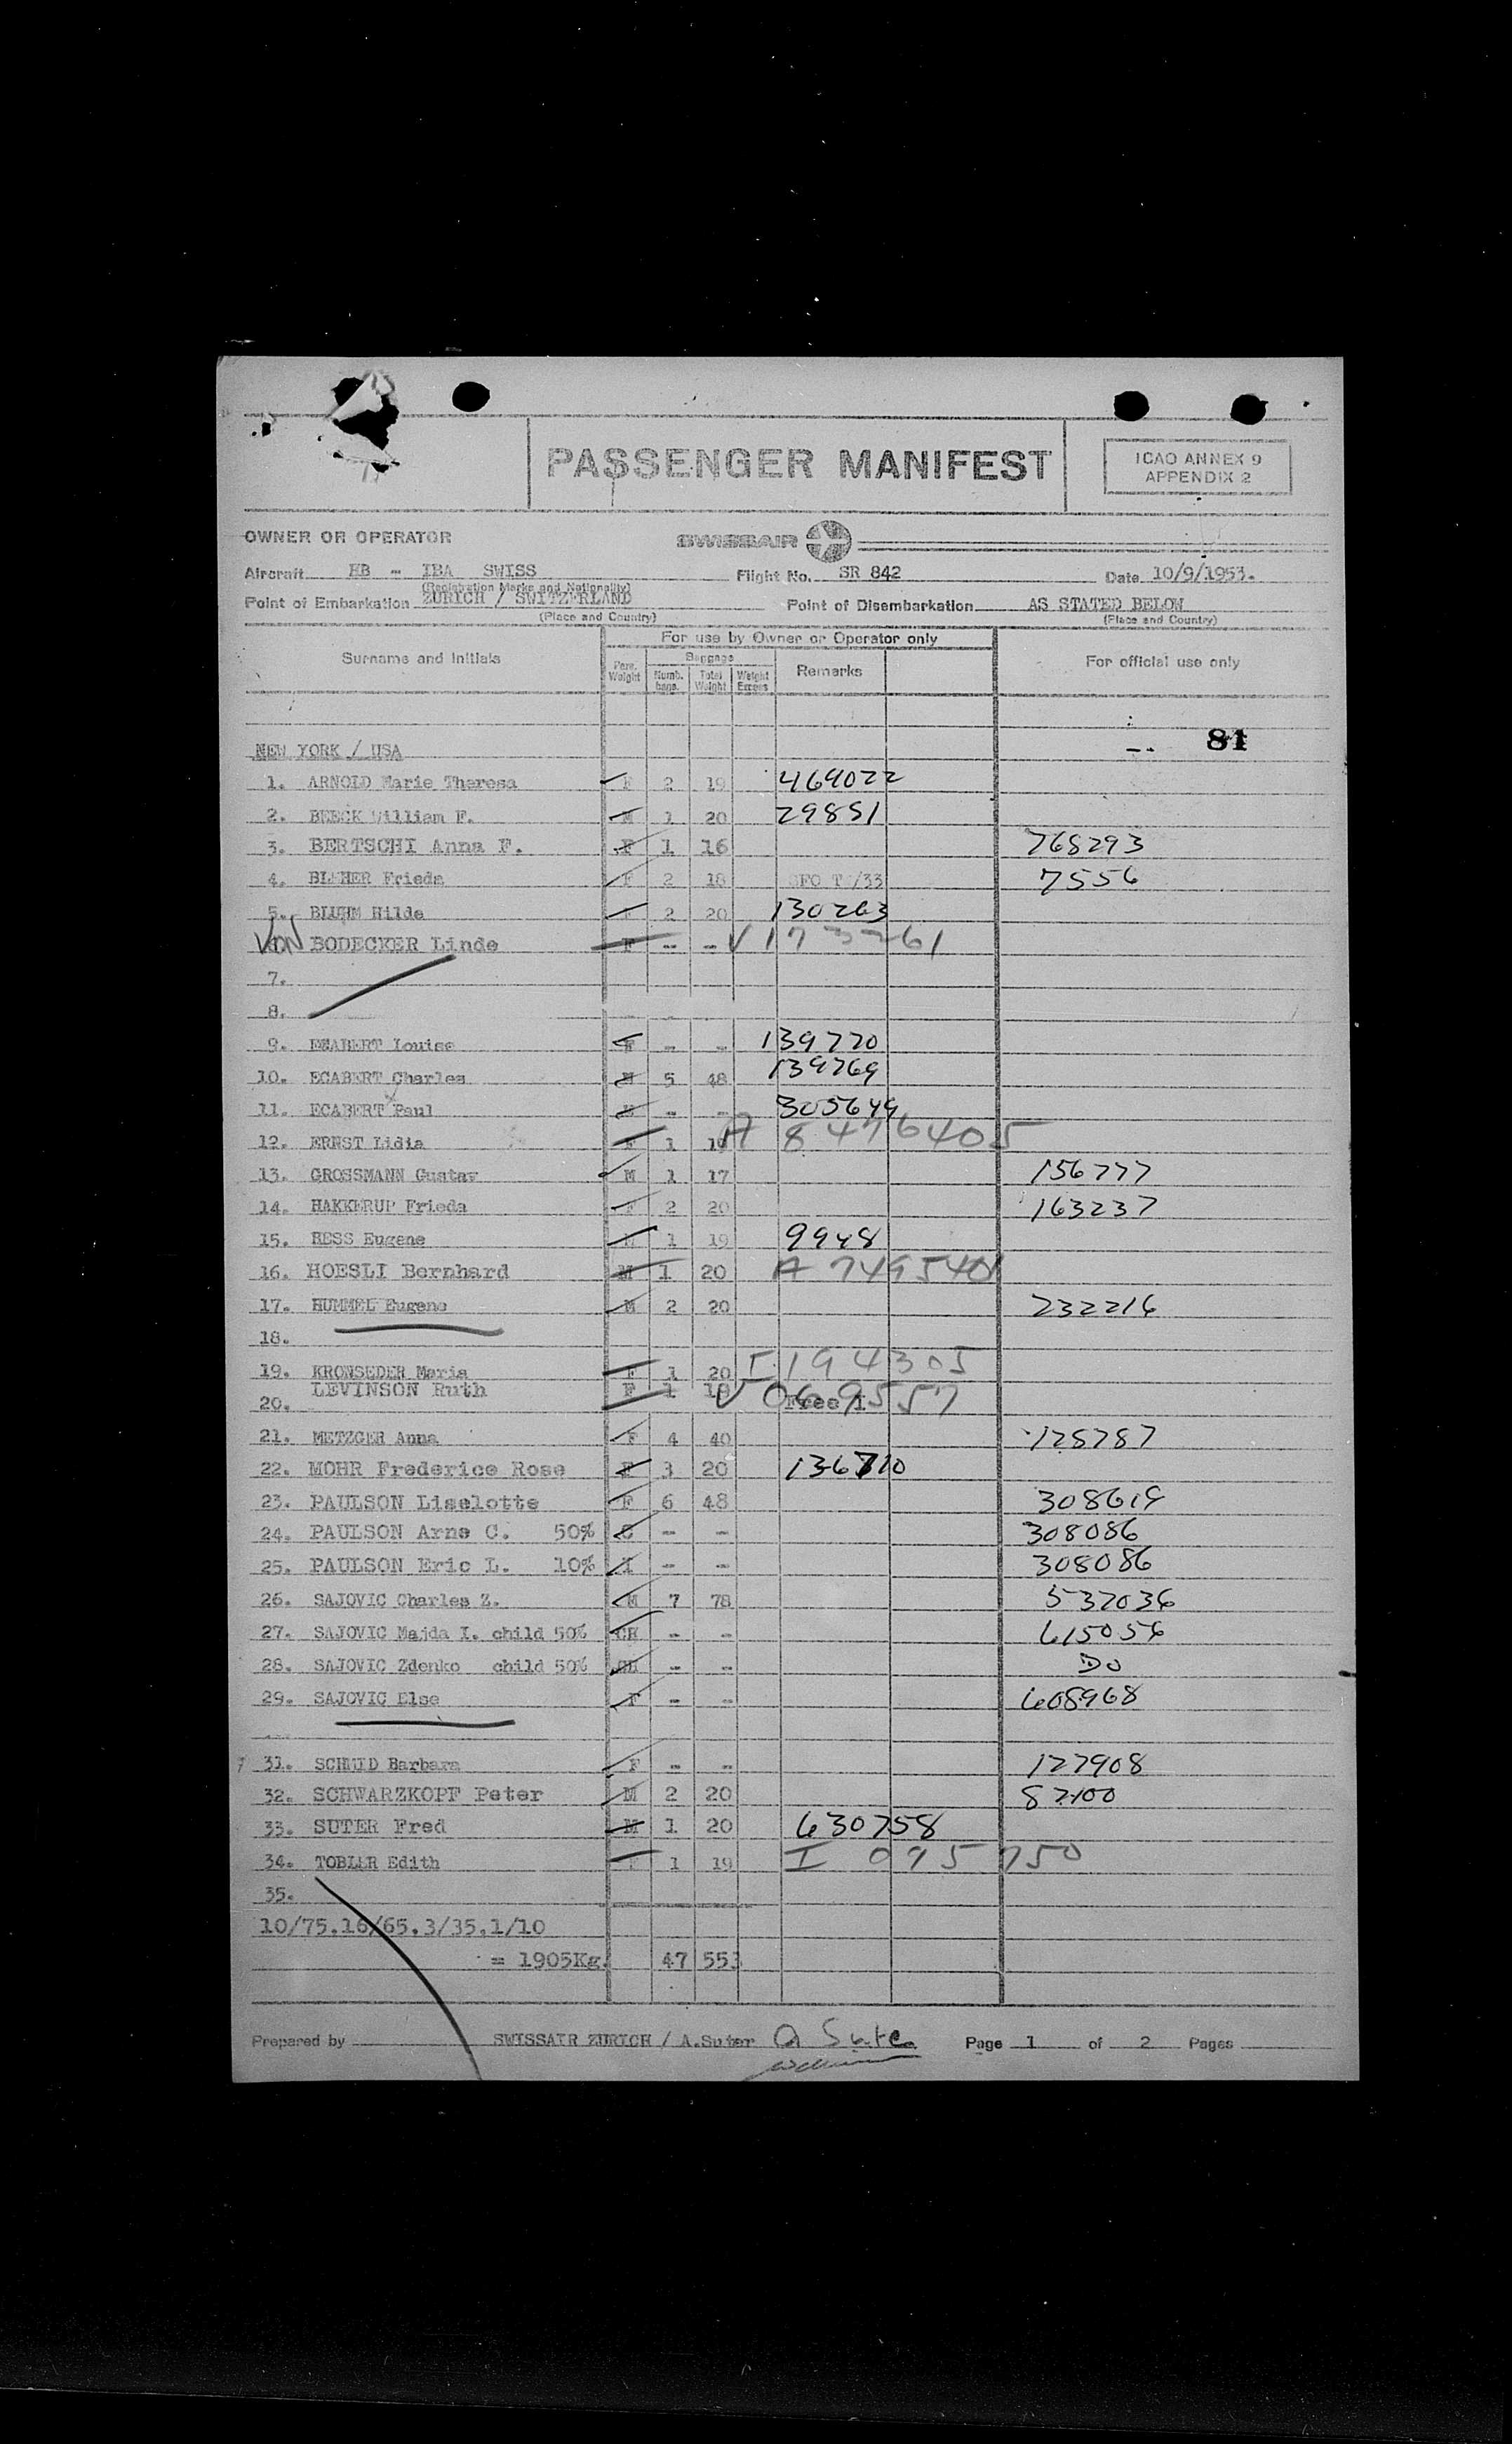 PASSENGER MANIFEST
ICAO ANNEX 9
APPENDIX 2
OWNER OR OPERATOR
SWISSAIR
Aircraft HB - IBA SWISS Flight No. SR 842 Date 10/9/1953.
(Registration Marks and Nationality)
Point of Embarkation ZURICH / SWITZERLAND Point of Disembarkation AS STATED BELOW
(Place and Country) (Place and Country)
For use by Owner or Operator only
Surname and Initials Pass. Weight Baggage Numb. bags. Total Weight Weight Excess Remarks For official use only
81
NEW YORK / USA
1. ARNOLD Marie Theresa F 2 19 469022
2. BEECK William F. M 1 20 29851
3. BERTSCHI Anna F. F 1 16 768293
4. BLEHER Frieda F 2 18 7556
5. BLUHM Hilde F 2 20 130263
VON BODECKER Linde F - - V 173261
7.
8.
9. Louise F - - 139770
10. ECABERT Charles M 5 48 139769
11. ECABERT Paul M - - 305649
12. ERNST Lidia F 1 A 8476405
13. GROSSMANN Gustav M 1 17 156777
14. HAKKERUP Frieda F 2 20 163237
15. Eugene M 1 19 9948
16. HOESLI Bernhard M 1 20 A 7495401
17. HUMMEL Eugene M 2 20 232216
18.
19. KRONSEDER Maria F 1 20 I 194305
20. LEVINSON Ruth F 1 18 V 069557
21. METZGER Anna F 4 40 128787
22. MOHR Frederice Rose F 3 20 136710
23. PAULSON Liselotte F 6 48 308619
24. PAULSON Arne C. 50% C - - 308086
25. PAULSON Eric L. 10% I - - 308086
26. SAJOVIC Charles Z. M 7 78 532036
27. SAJOVIC Majda I. child 50% CH - - 615056
28. SAJOVIC Zdenko child 50% CH - - Do
29. SAJOVIC Else F - - 608968
31. SCHMID Barbara F - - 127908
32. SCHWARZKOPF Peter M 2 20 82100
33. SUTER Fred M 1 20 630758
34. TOBLER Edith F 1 19 I 095750
35.
10/75.16/65.3/35.1/10
= 1905Kg. 47 553
Prepared by SWISSAIR ZURICH / A.Suter A Suter Page 1 of 2 Pages